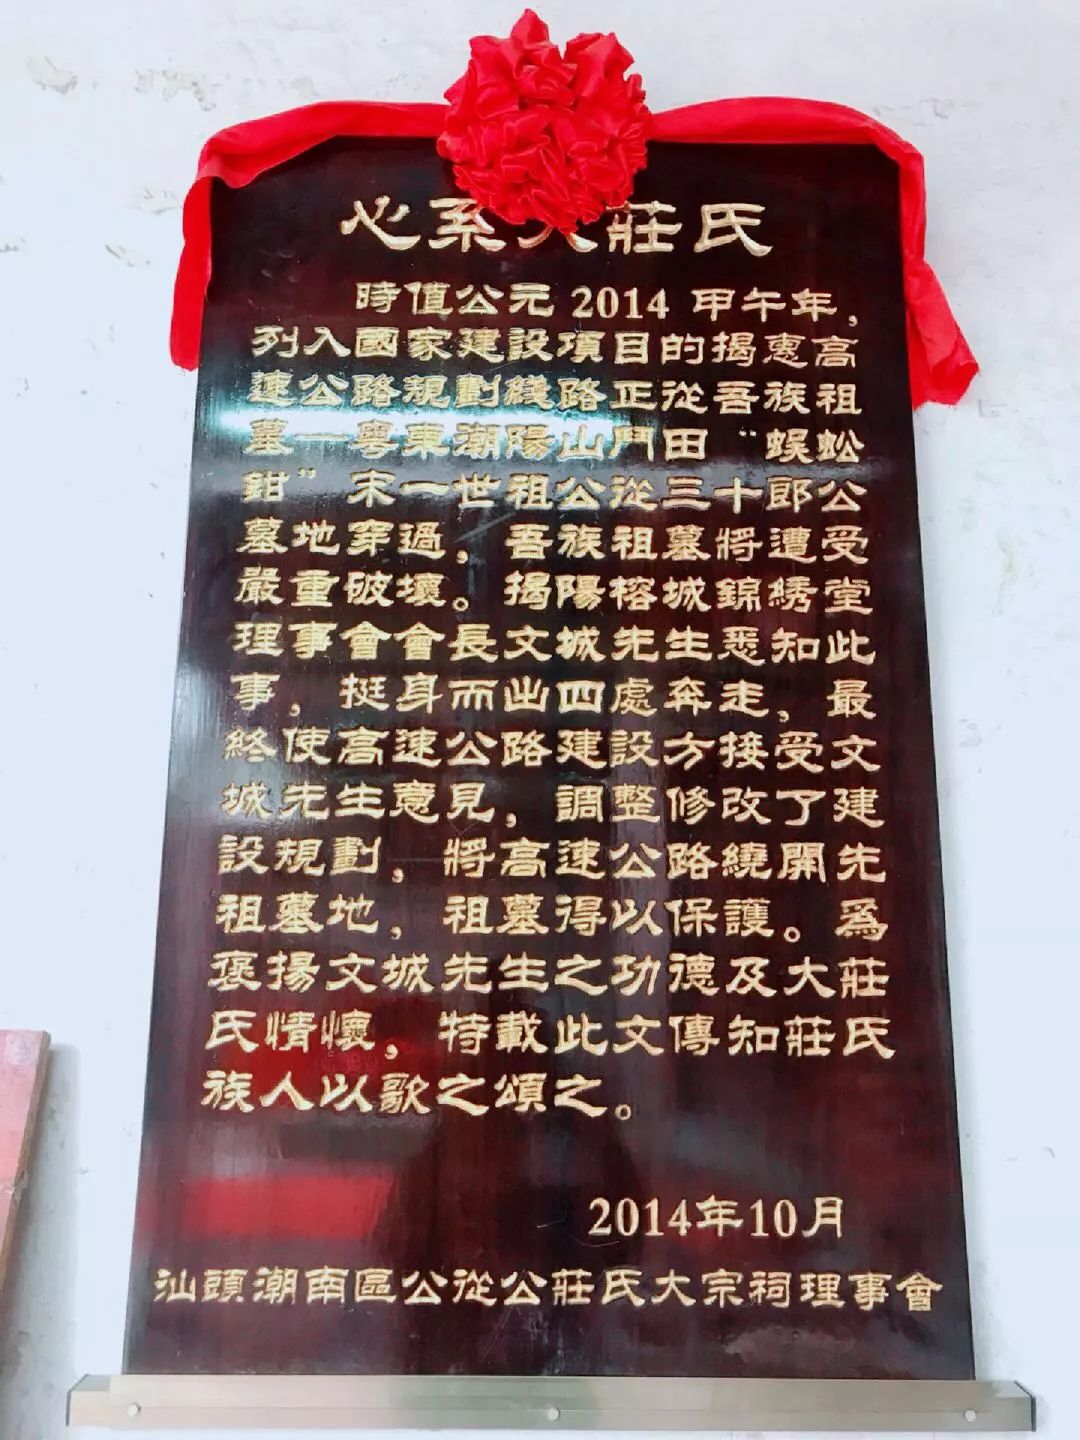 心系大莊氏
時值公元 2014 甲午年，
列入國家建設項目的揭惠高
速公路規劃綫路正從吾族祖
墓一粵東潮陽山門田“蜈蚣
鉗”宋一世祖公從三十郎公
墓地穿過，吾族祖墓將遭受
嚴重破壞。揭陽榕城錦綉堂
理事會會長文城先生悉知此
事，挺身而出四處奔走，最
終使高速公路建設方接受文
城先生意見，調整修改了建
設規劃，將高速公路繞開先
祖墓地，祖墓得以保護。爲
褒揚文城先生之功德及大莊
氏情懷，特載此文傳知莊氏
族人以歌之頌之。
2014年10月
汕頭潮南區公從公莊氏大宗祠理事會